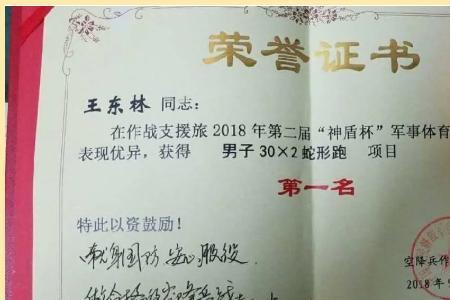 荣誉证书
王东林 同志：
在作战支援旅 2018 年第二届“神盾杯”军事体育
表现优异，获得 男子 30×2 蛇形跑 项目
第一名
特此以资鼓励！
献身国防 安心服役
空降兵作
2018 年